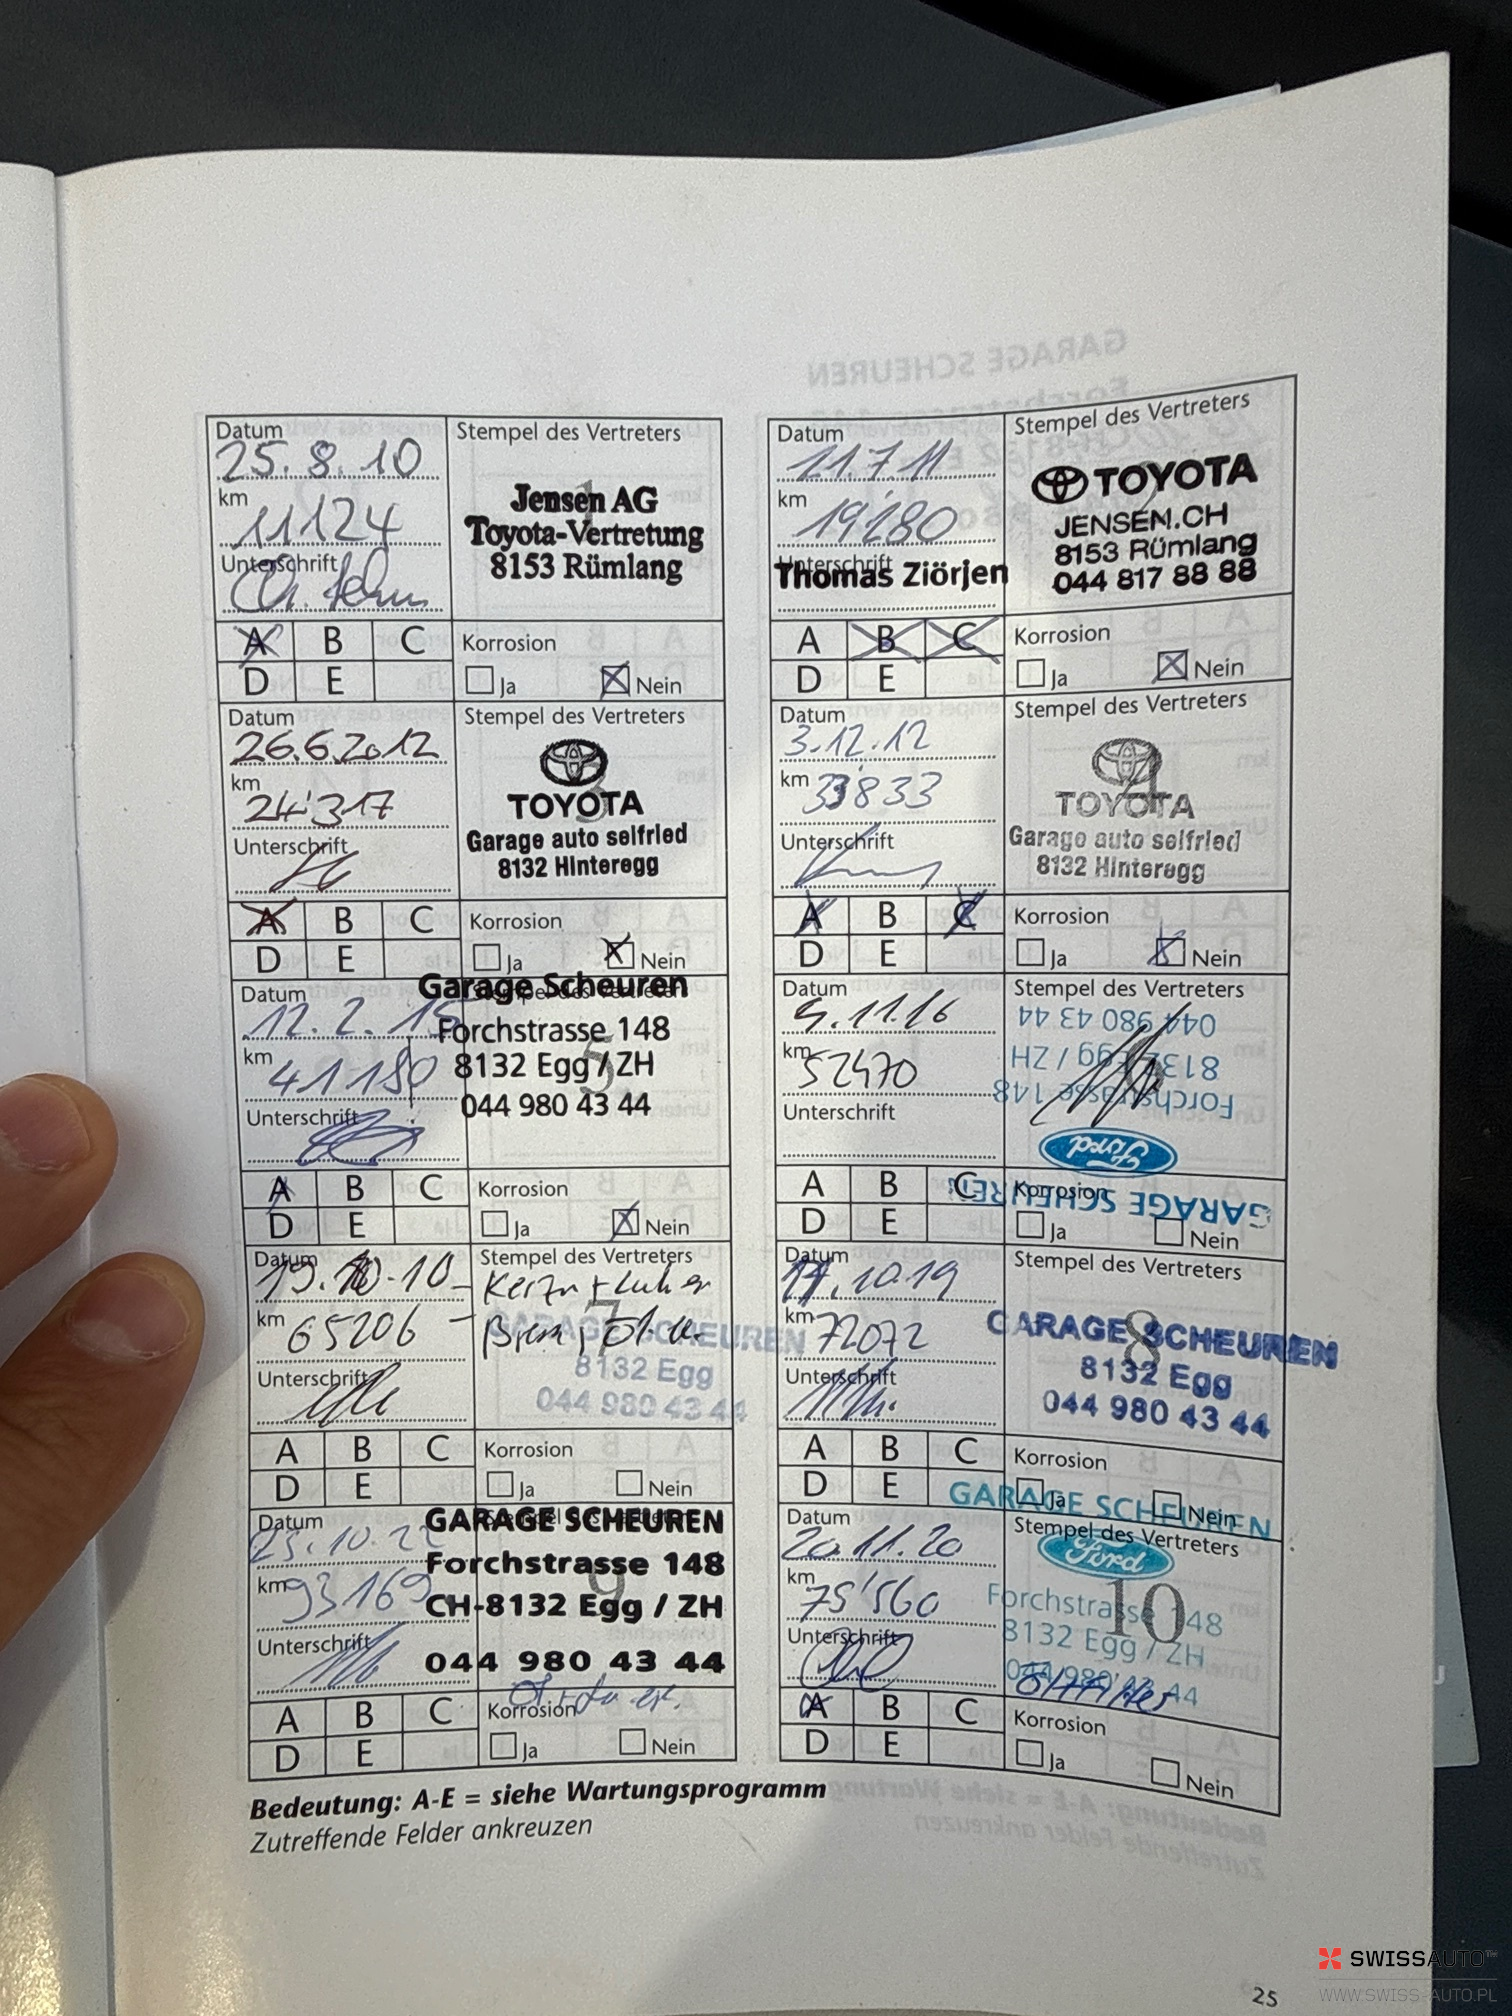 Datum
25.8.10
km
11124
Unterschrift
Stempel des Vertreters
1
Jensen AG
Toyota-Vertretung
8153 Rümlang
A B C
D E
Korrosion
Ja Nein
Datum
11.7.11
km
19'280
Unterschrift
Thomas Ziörjen
Stempel des Vertreters
TOYOTA
JENSEN.CH
8153 Rümlang
044 817 88 88
A B C
D E
Korrosion
Ja Nein
Datum
26.6.2012
km
24'317
Unterschrift
Stempel des Vertreters
3
TOYOTA
Garage auto seifried
8132 Hinteregg
A B C
D E
Korrosion
Ja Nein
Datum
3.12.12
km
33833
Unterschrift
Stempel des Vertreters
4
TOYOTA
Garage auto seifried
8132 Hinteregg
A B C
D E
Korrosion
Ja Nein
Datum
12.2.15
km
41180
Unterschrift
Garage Scheuren
Stempel des Vertreters
Forchstrasse 148
5
8132 Egg / ZH
044 980 43 44
A B C
D E
Korrosion
Ja Nein
Datum
9.11.16
km
52470
Unterschrift
Stempel des Vertreters
6
044 980 43 44
8132 Egg / ZH
Forchstrasse 148
Ford
GARAGE SCHEUREN
A B C
D E
Korrosion
Ja Nein
Datum
km
65206
Unterschrift
Stempel des Vertreters
7
GARAGE SCHEUREN
8132 Egg
044 980 43 44
A B C
D E
Korrosion
Ja Nein
Datum
17.10.19
km
72072
Unterschrift
Stempel des Vertreters
8
GARAGE SCHEUREN
8132 Egg
044 980 43 44
A B C
D E
Korrosion
Ja Nein
Datum
25.10.22
km
93169
Unterschrift
GARAGE SCHEUREN
Stempel des Vertreters
Forchstrasse 148
9
CH-8132 Egg / ZH
044 980 43 44
A B C
D E
Korrosion
Ja Nein
Datum
20.11.20
km
75'560
Unterschrift
GARAGE SCHEUREN
Stempel des Vertreters
Ford
10
Forchstrasse 148
8132 Egg / ZH
044 980 43 44
A B C
D E
Korrosion
Ja Nein
Bedeutung: A-E = siehe Wartungsprogramm
Zutreffende Felder ankreuzen
25
SWISSAUTO™
WWW.SWISS-AUTO.PL